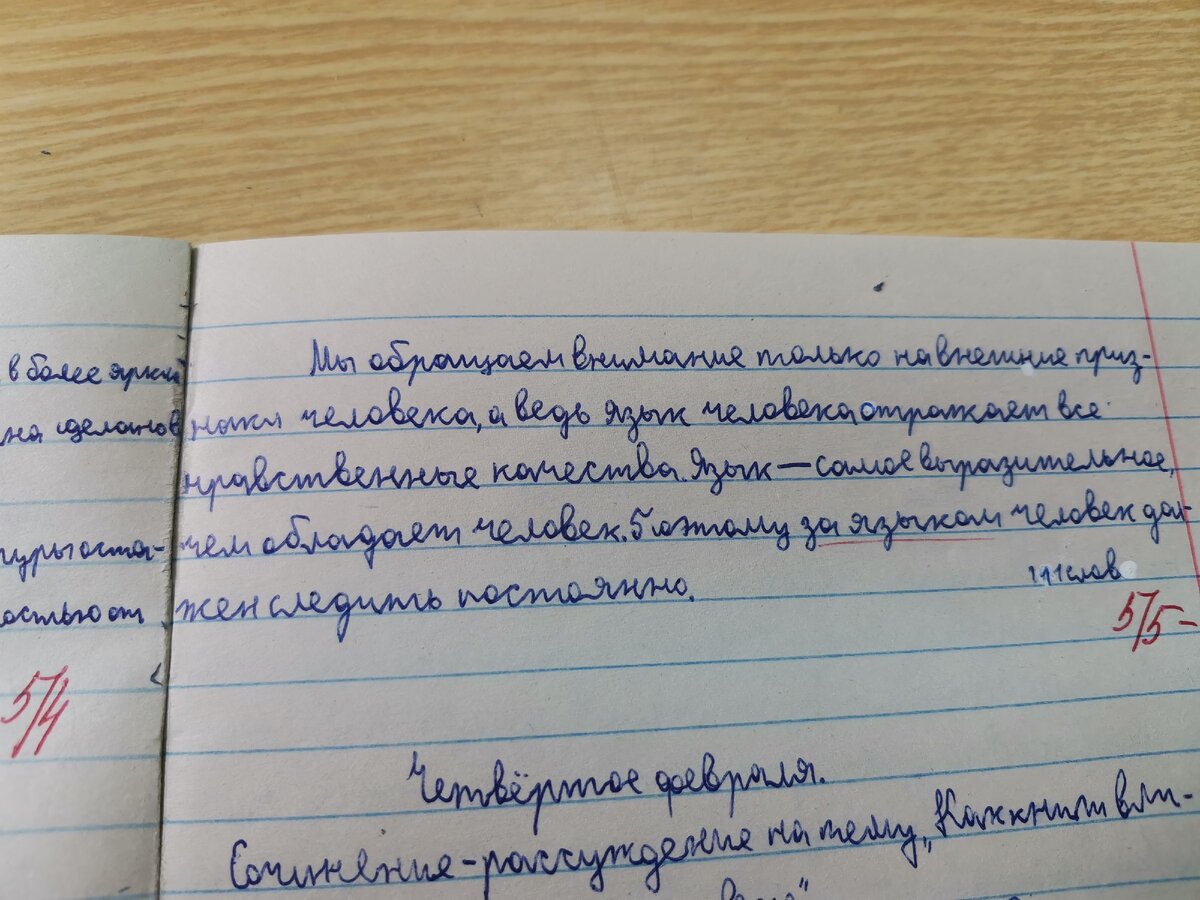 в более яркий
на сделанов
туры оста-
остью от
5/4
Мы обращаем внимание только на внешние приз-
наки человека, а ведь язык человека отражает все
нравственные качества. Язык — самое выразительное,
чем обладает человек. Поэтому за языком человек дол-
жен следить постоянно.
111 слов
5/5-
Четвёртое февраля.
Сочинение-рассуждение на тему „Как книги вли-